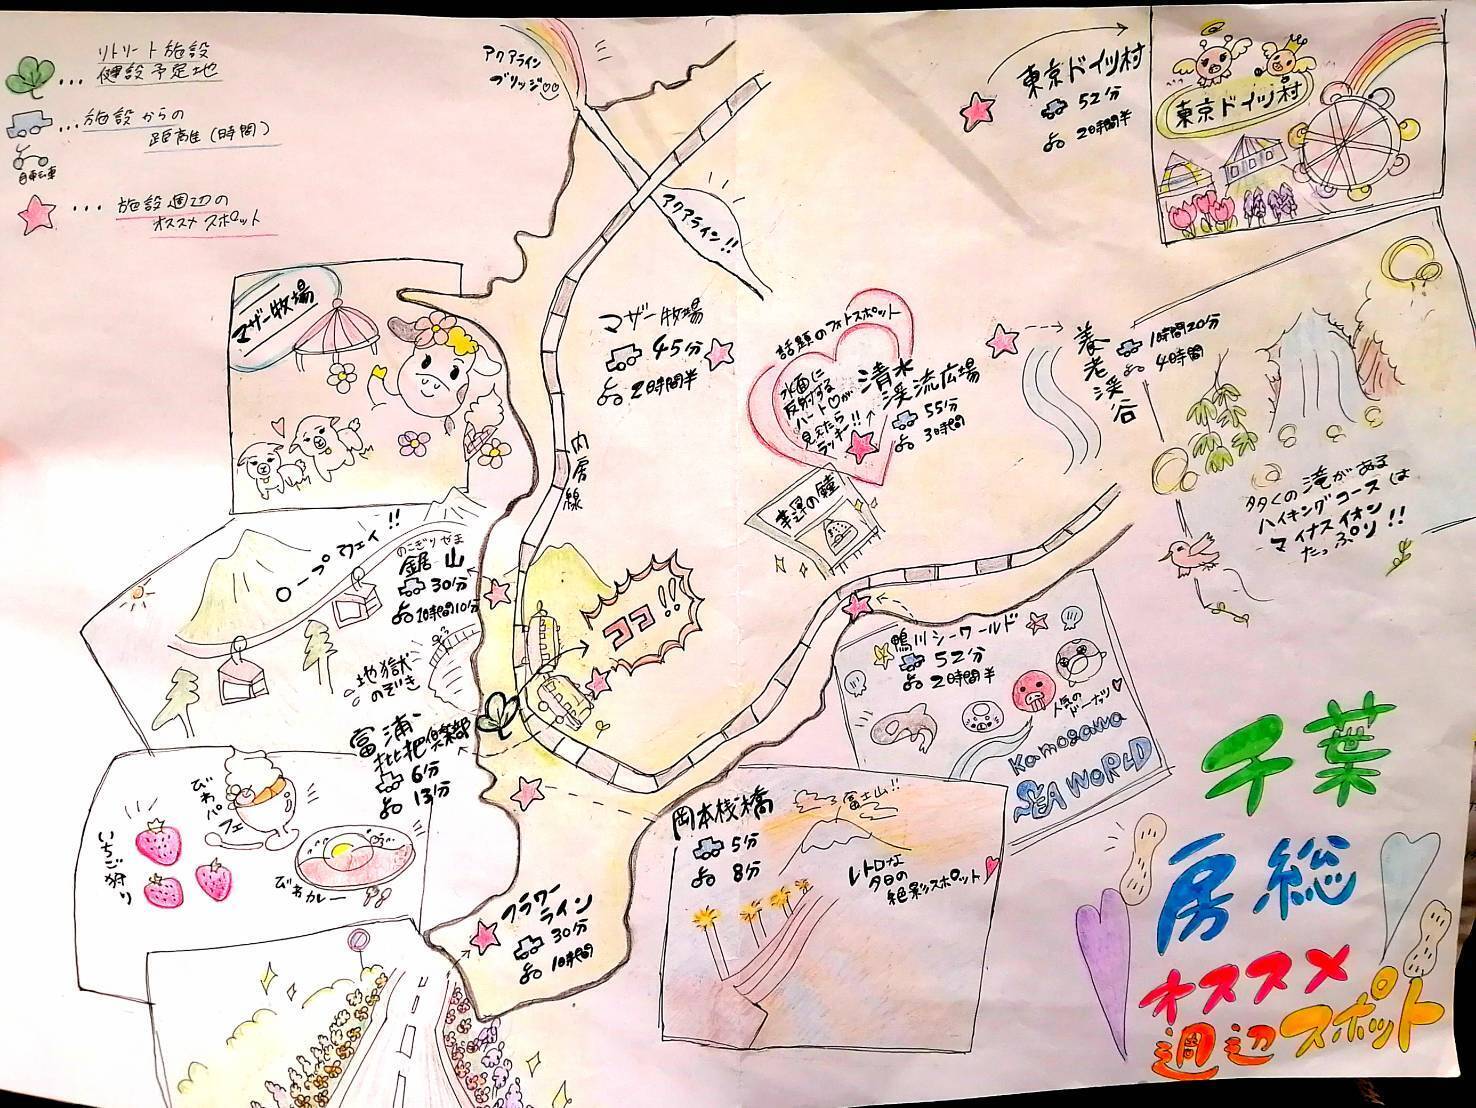 リトリート施設
健設予定地
...施設からの
距離(時間)
自転車
...施設週辺の
オススメスポット
アクアライン
ブリッジ
アクアライン!!
東京ドイツ村
52分
2時間半
東京ドイツ村
マザー牧場
マザー牧場
45分
2時間半
内房線
話題のフォトスポット
水面に
反射する
ハート♡が
見えたら
ラッキー!!
清水
渓流広場
55分
3時間
養老渓谷
1時間20分
4時間
多くの滝がある
ハイキングコースは
マイナスイオン
たっぷり!!
幸運の鐘
ロープウェイ!!
のこぎりやま
鋸山
30分
1時間10分
地獄
のぞき
ココ!!
富浦
枇杷倶楽部
6分
13分
びわパフェ
いちご狩り
びわカレー
鴨川シーワールド
52分
2時間半
人気の
ドーナッツ♡
Kamogawa
SEA WORLD
岡本桟橋
5分
8分
富士山!!
レトロな
夕日の
絶影スポット
フラワー
ライン
30分
1時間
千葉
房総
オススメ
週辺スポット